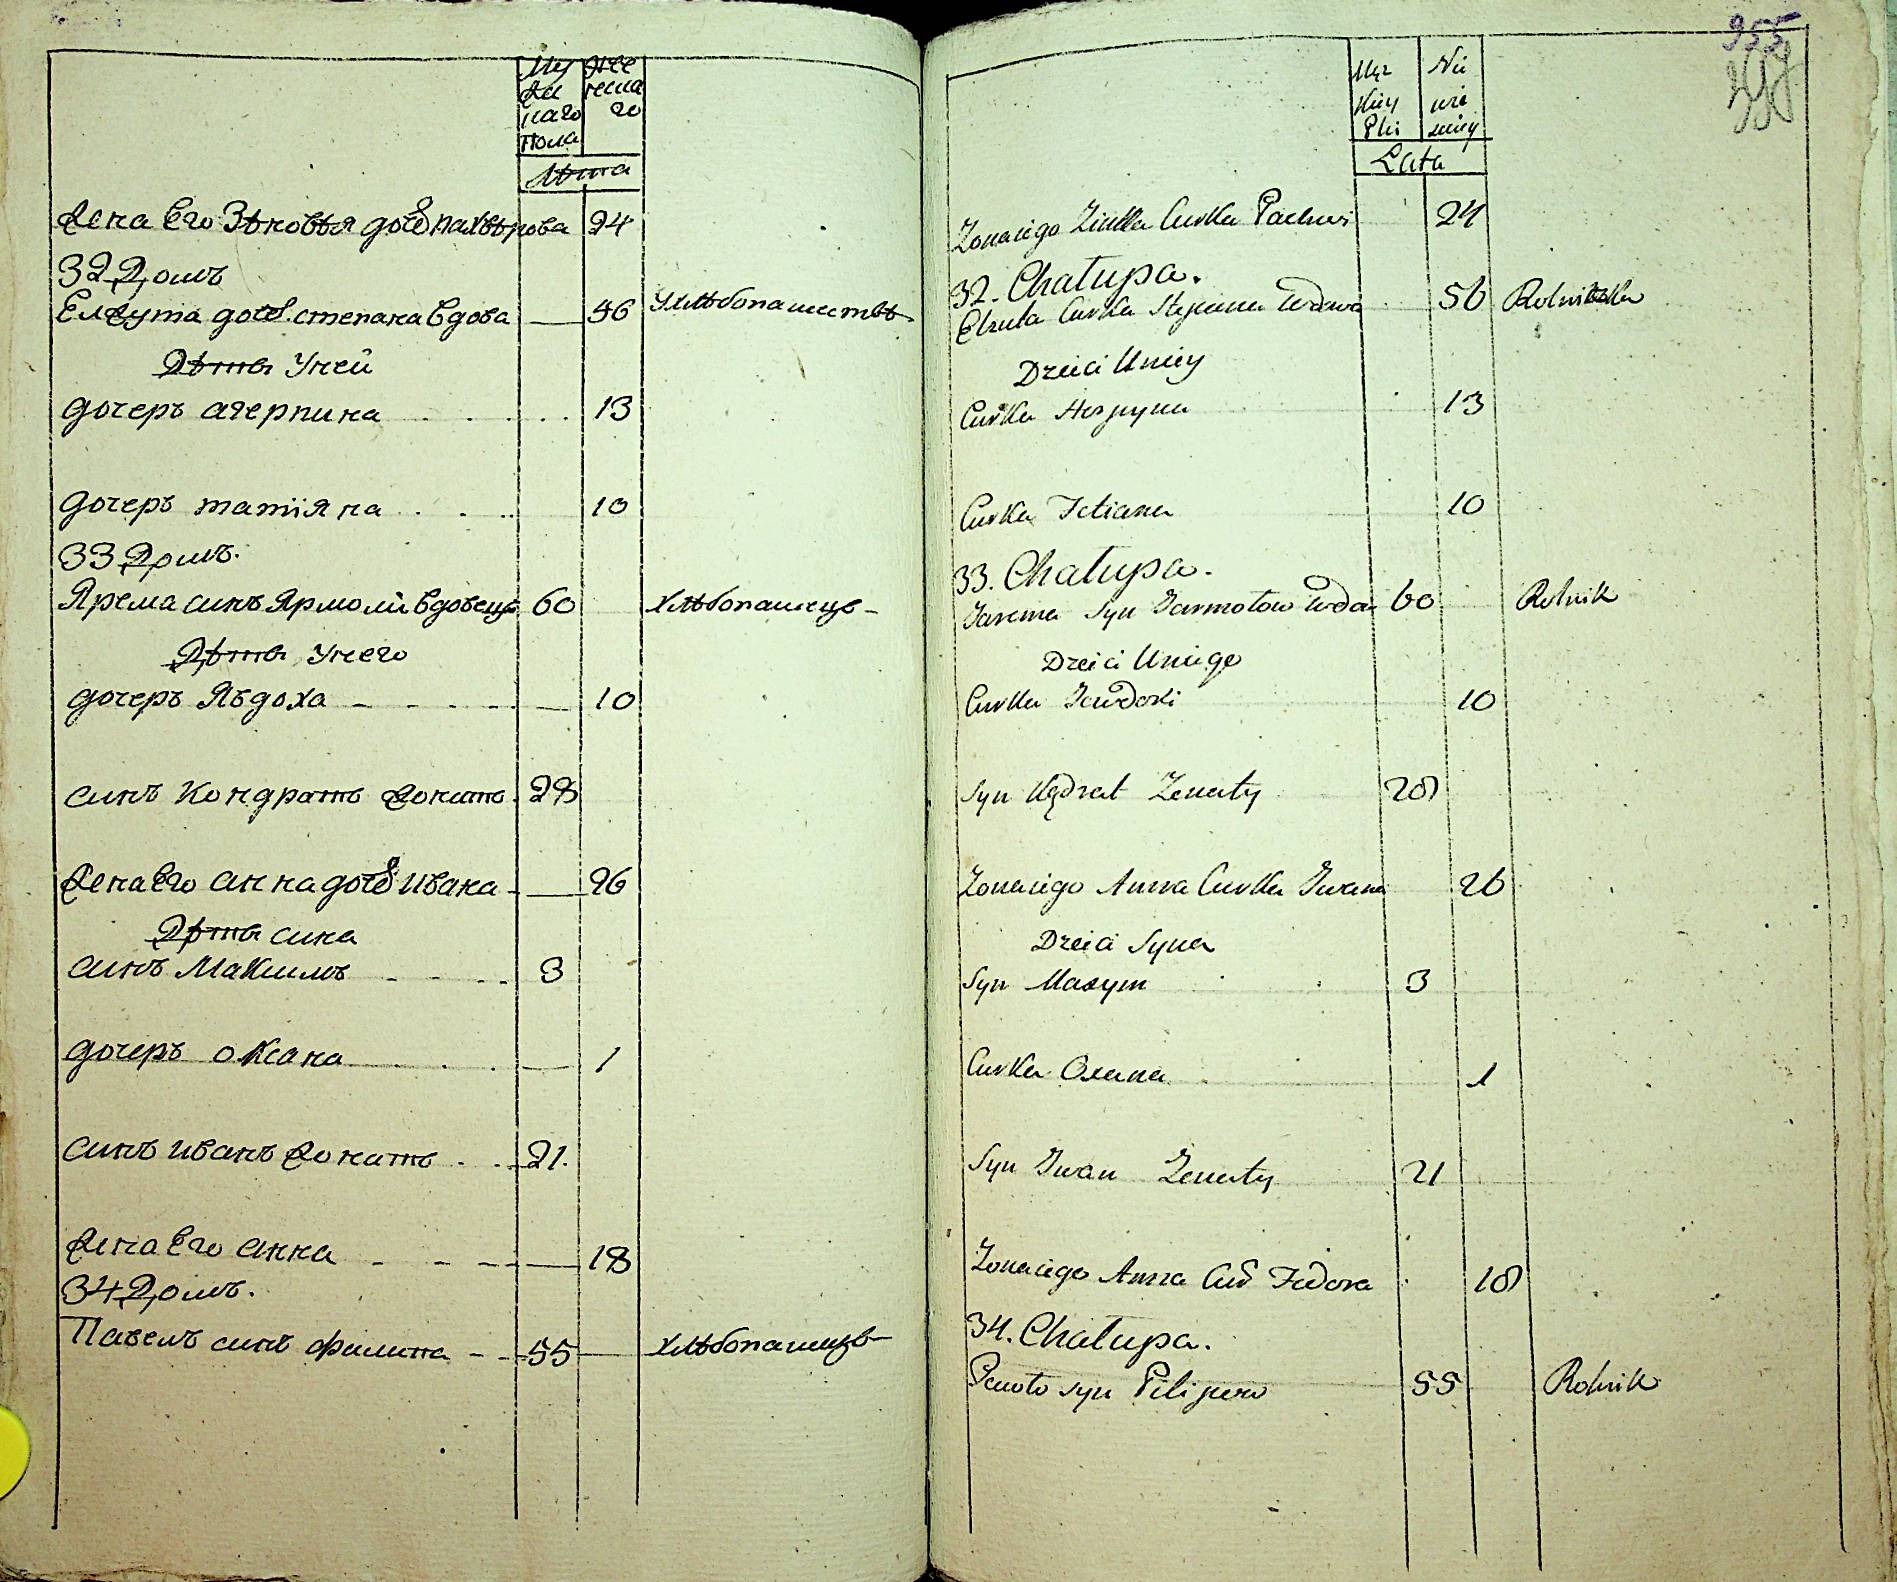 Му
жес
каго
Пола
Же
нска
го
Лѣта
Жена Его Зѣновѣя дочь пахвѣрова 24
32 Домъ
Елжута дочь степана вдова 56 Ухлѣбопашествѣ
Дѣтѣ Уней
дочеръ агерпина 13
дочеръ татіяна 10
33 Домъ.
Ярема синъ Ярмоли вдовецъ 60 хлѣбопашецъ
Дѣтѣ Унего
дочеръ Явдоха 10
синъ Кондратъ жонатъ 28
Жена Его анна дочь ивана 26
Дѣтѣ сина
синъ Максимъ 3
дочеръ оксана 1
синъ иванъ жонатъ 21.
Жена Его анна 18
34 Домъ.
Павелъ синъ филипа 55 хлѣбопашецъ
955
Męz
kiey
Płci
Nie
wie
sciey
Lata
Zona iego Zinka Curka Pachwi 24
32. Chałupa.
Elzuta Curka Stepana wdowa 56 Rolniczka
Dzieci Uniey
Curka 13
Curka Tetiana 10
33. Chałupa.
Jarema Syn Jarmołow wdo 60 Rolnik
Dzieci Uniego
Curka Jewdoxi 10
Syn Kędrat Zenaty 28
Zona iego Anna Curka Iwana 26
Dzieci Syna
Syn Maxym 3
Curka Oxana 1
Syn Iwan Zenaty 21
Zona iego Anna Cur Fedora 18
34. Chałupa.
Pawło syn Pilipow 55 Rolnik